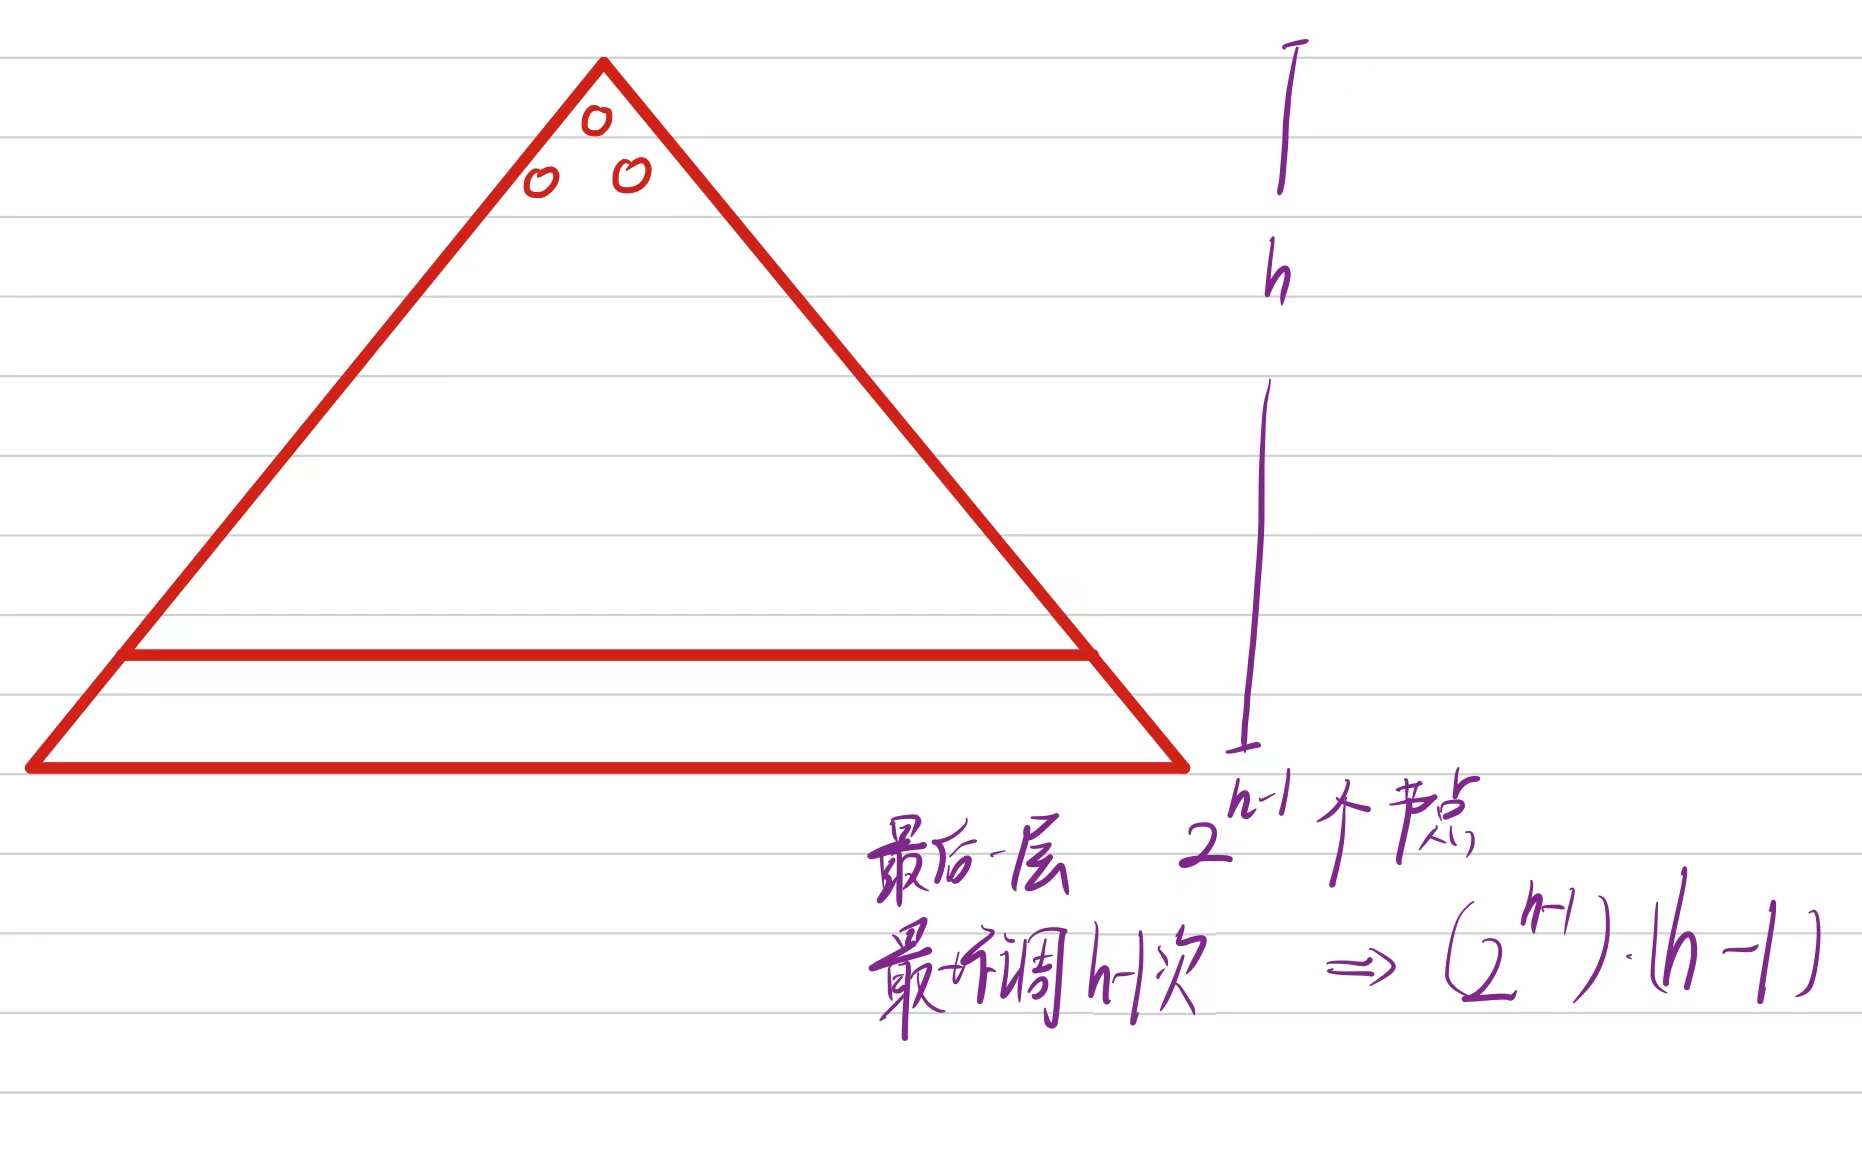 h
最后一层 2^{h-1}个节点
最坏调h-1次 ⇒ (2^{h-1})·(h-1)